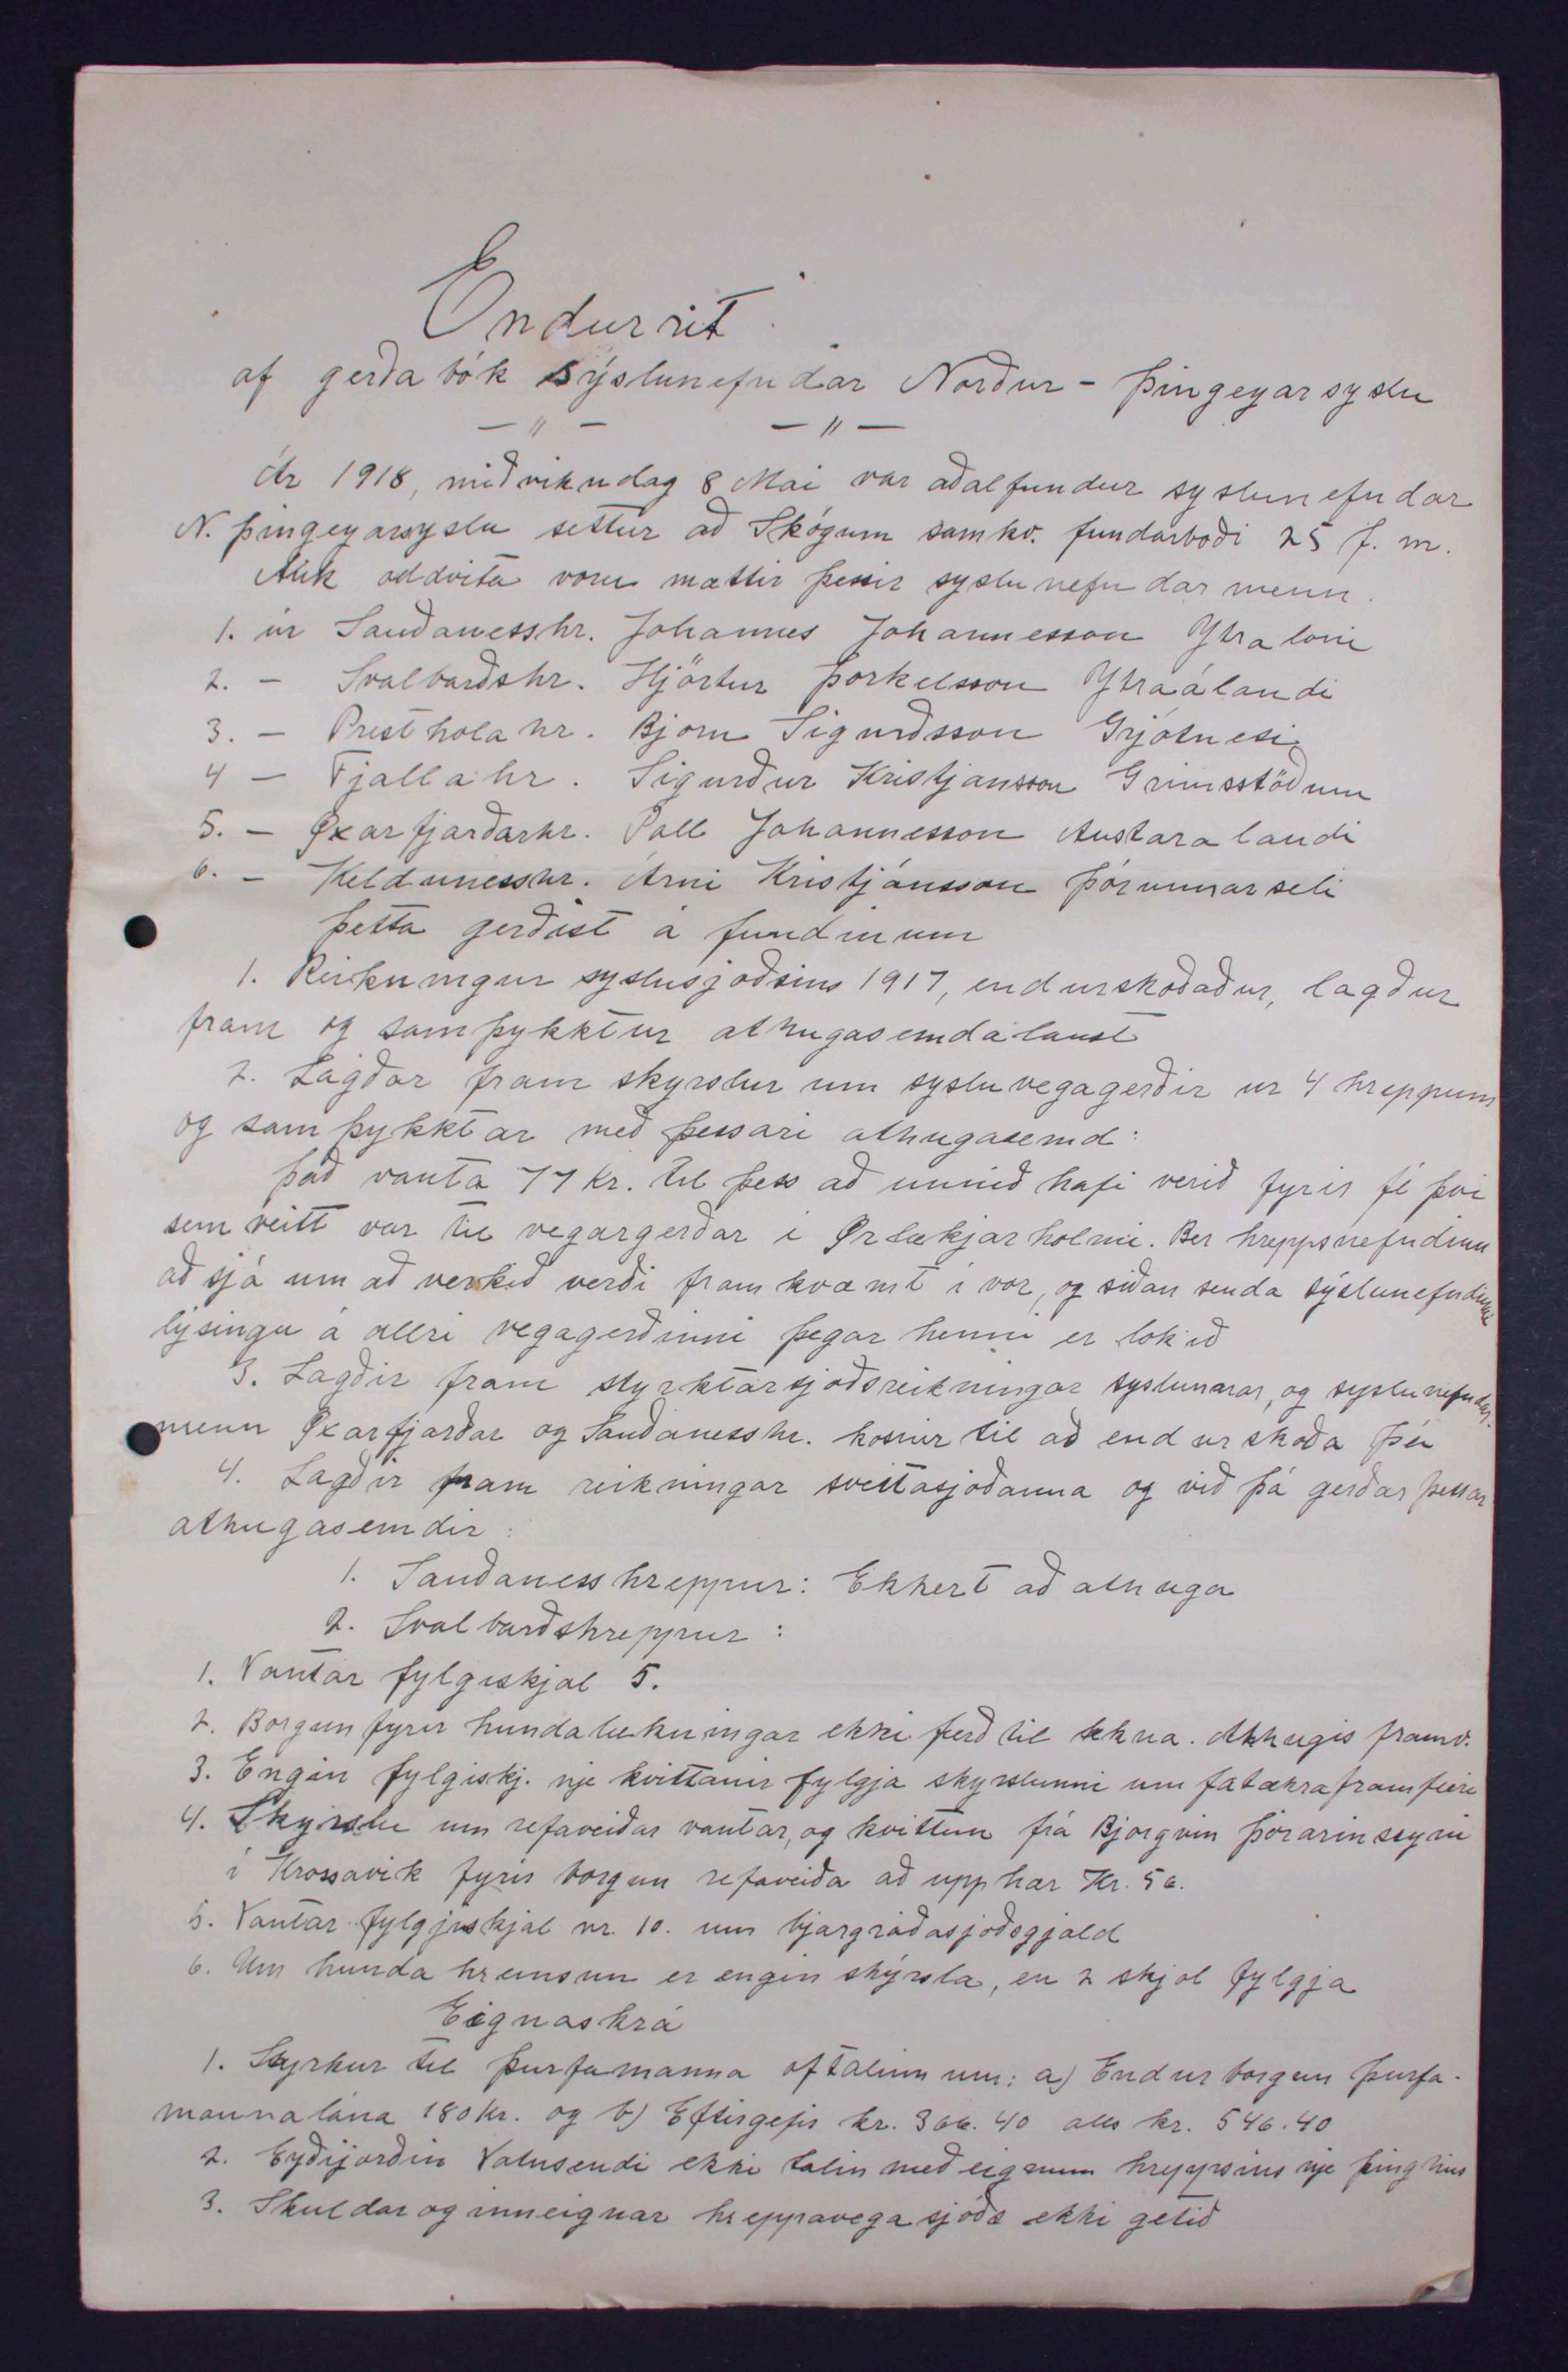 Endurrit
af gerðabók sýslunefndar Norður - Þingeyarsyslu
— " — — " —
Ár 1918, miðvikudag 8 Mai var aðalfundur syslunefndar
N. Þingeyarsyslu settur að Skógum samkv. fundarboði 25 f. m.
Auk oddvita voru mættir þessir syslunefndarmenn.
1. úr Sauðanesshr. Johannes Johannesson Ytralóni
2. — Svalbarðshr. Hjörtur Þorkelsson Ytraálandi
3. — Presthólahr. Bjorn Sigurðsson Grjótnesi
4 — Fjallahr. Sigurður Kristjansson Grimsstöðum
5. — Øxarfjarðarhr. Pall Johannesson Austaralandi
6. — Keldunesshr. Árni Kristjánsson Þórunnarseli
Þetta gerðist á fundinum
1. Reikningur syslusjoðsins 1917, endurskoðaður, lagður
fram og samþykktur athugasemdalaust
2. Lagðar fram skyrslur um sysluvegagerðir ur 4 hreppum
og samþykktar með þessari athugasemd:
Það vanta 77 kr. til þess að unnið hafi verið fyrir fé því
sem veitt var til vegargerðar i Ørlækjarholmi. Ber hreppsnefndinni
að sjá um að verkið verði framkvæmt i vor, og siðan senda sýslunefndinni
lýsingu á allri vegagerðinni þegar henni er lokið
3. Lagðir fram styrktarsjoðsreikningar syslunnar, og syslunefndar-
menn Øxarfjarðar og Sauðanesshr. kosnir til að endurskoða þá
4. Lagðir fram reikningar sveitasjoðanna og við þá gerðar þessar
athugasemdir:
1. Sauðanesshreppur: Ekkert að athuga
2. Svalbarðshreppur:
1. Vantar fylgiskjal 5.
2. Borgun fyrir hundalækningar ekki færð til tekna. Athugis framv.
3. Engin fylgiskj. nje kvittanir fylgja skyrslunni um fatækraframfæri
4. Skyrslu um refaveiðar vantar, og kvittun frá Bjorgvin Þórarinssyni
i Krossavik fyrir borgun refaveiða að upphæð Kr. 56.
5. Vantar fylgjiskjal nr. 10. um bjargráðasjoðsgjald
6. Um hundahreinsun er engin skýrsla, en 2 skjol fylgja
Eignaskrá
1. Styrkur til þurfamanna oftalinn um: a) Endurborgun þurfa-
mannalána 180 kr. og b) Eftirgefir kr. 366.40 alls kr. 546.40
2. Eyðijorðin Vatnsendi ekki talin með eignum hreppsins nje þinghús
3. Skuldar og inneignar hreppavegasjóðs ekki getið